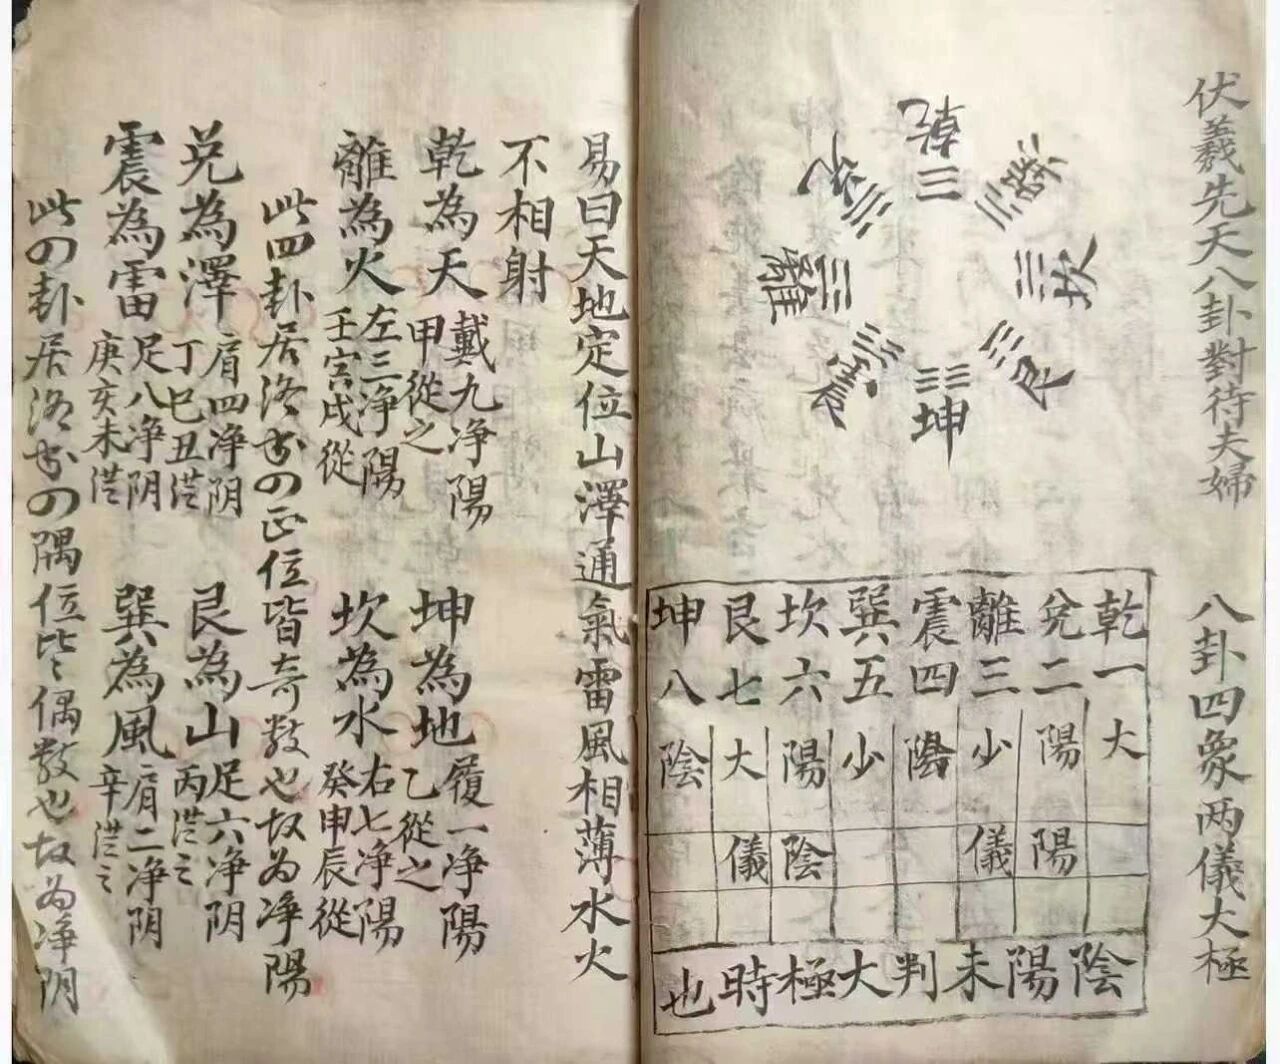 伏羲先天八卦對待夫婦
八卦四象两儀大極
乾
兌
離
震
巽
坎
艮
坤
乾一
兌二
離三
震四
巽五
坎六
艮七
坤八
大陽
少陰
少陽
大陰
陽儀
陰儀
陰陽未判大極時也
易曰天地定位山澤通氣雷風相薄水火
不相射
乾為天 戴九净陽 甲從之
坤為地 履一净陽 乙從之
離為火 左三净陽 壬寅戌從
坎為水 右七净陽 癸申辰從
此四卦居洛书四正位皆奇数也故为净陽
兑為澤 肩四净阴 丁巳丑從
艮為山 足六净阴 丙從之
震為雷 足八净阴 庚亥未從
巽為風 肩二净阴 辛從之
此四卦居洛书四隅位皆偶数也故为净阴